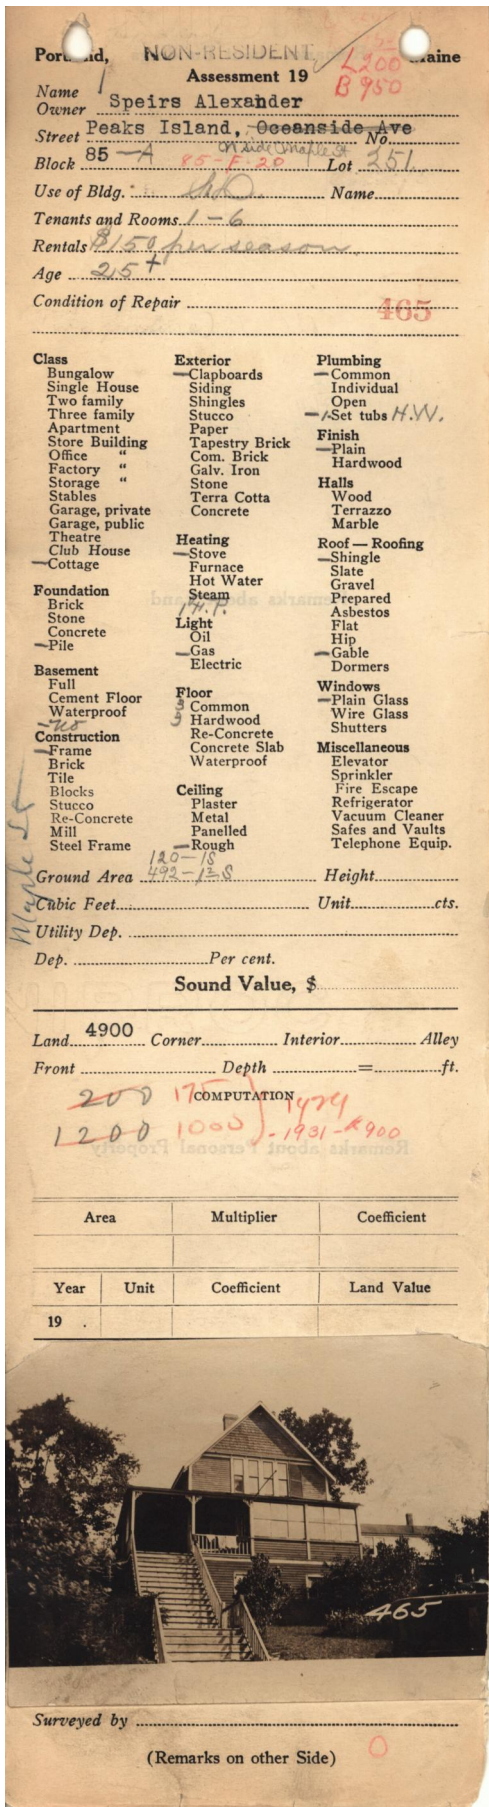 Portland, NON-RESIDENT Maine
Assessment 19
L200
B 950
Name
Owner Speirs Alexander
Street Peaks Island, Oceanside Ave No.
N side Maple St
Block 85-A 85-F-20 Lot 251
Use of Bldg. Name
Tenants and Rooms 1-6
Rentals $150 per season
Age 25+
Condition of Repair
465
Class
Bungalow
Single House
Two family
Three family
Apartment
Store Building
Office "
Factory "
Storage "
Stables
Garage, private
Garage, public
Theatre
Club House
Cottage
Foundation
Brick
Stone
Concrete
Pile
Basement
Full
Cement Floor
Waterproof
No
Construction
Frame
Brick
Tile
Blocks
Stucco
Re-Concrete
Mill
Steel Frame
Exterior
Clapboards
Siding
Shingles
Stucco
Paper
Tapestry Brick
Com. Brick
Galv. Iron
Stone
Terra Cotta
Concrete
Heating
Stove
Furnace
Hot Water
Steam
1 F.P.
Light
Oil
Gas
Electric
Floor
3 Common
3 Hardwood
Re-Concrete
Concrete Slab
Waterproof
Ceiling
Plaster
Metal
Panelled
Rough
Plumbing
Common
Individual
Open
1 Set tubs H.W.
Finish
Plain
Hardwood
Halls
Wood
Terrazzo
Marble
Roof — Roofing
Shingle
Slate
Gravel
Prepared
Asbestos
Flat
Hip
Gable
Dormers
Windows
Plain Glass
Wire Glass
Shutters
Miscellaneous
Elevator
Sprinkler
Fire Escape
Refrigerator
Vacuum Cleaner
Safes and Vaults
Telephone Equip.
Maple St
120-1S
Ground Area 492-1½ S Height
Cubic Feet Unit cts.
Utility Dep.
Dep. Per cent.
Sound Value, $
Land 4900 Corner Interior Alley
Front Depth = ft.
COMPUTATION
200 175 1924
1200 1000 - 1931 - $900
Area Multiplier Coefficient
Year Unit Coefficient Land Value
19 .
465
Surveyed by
(Remarks on other Side)